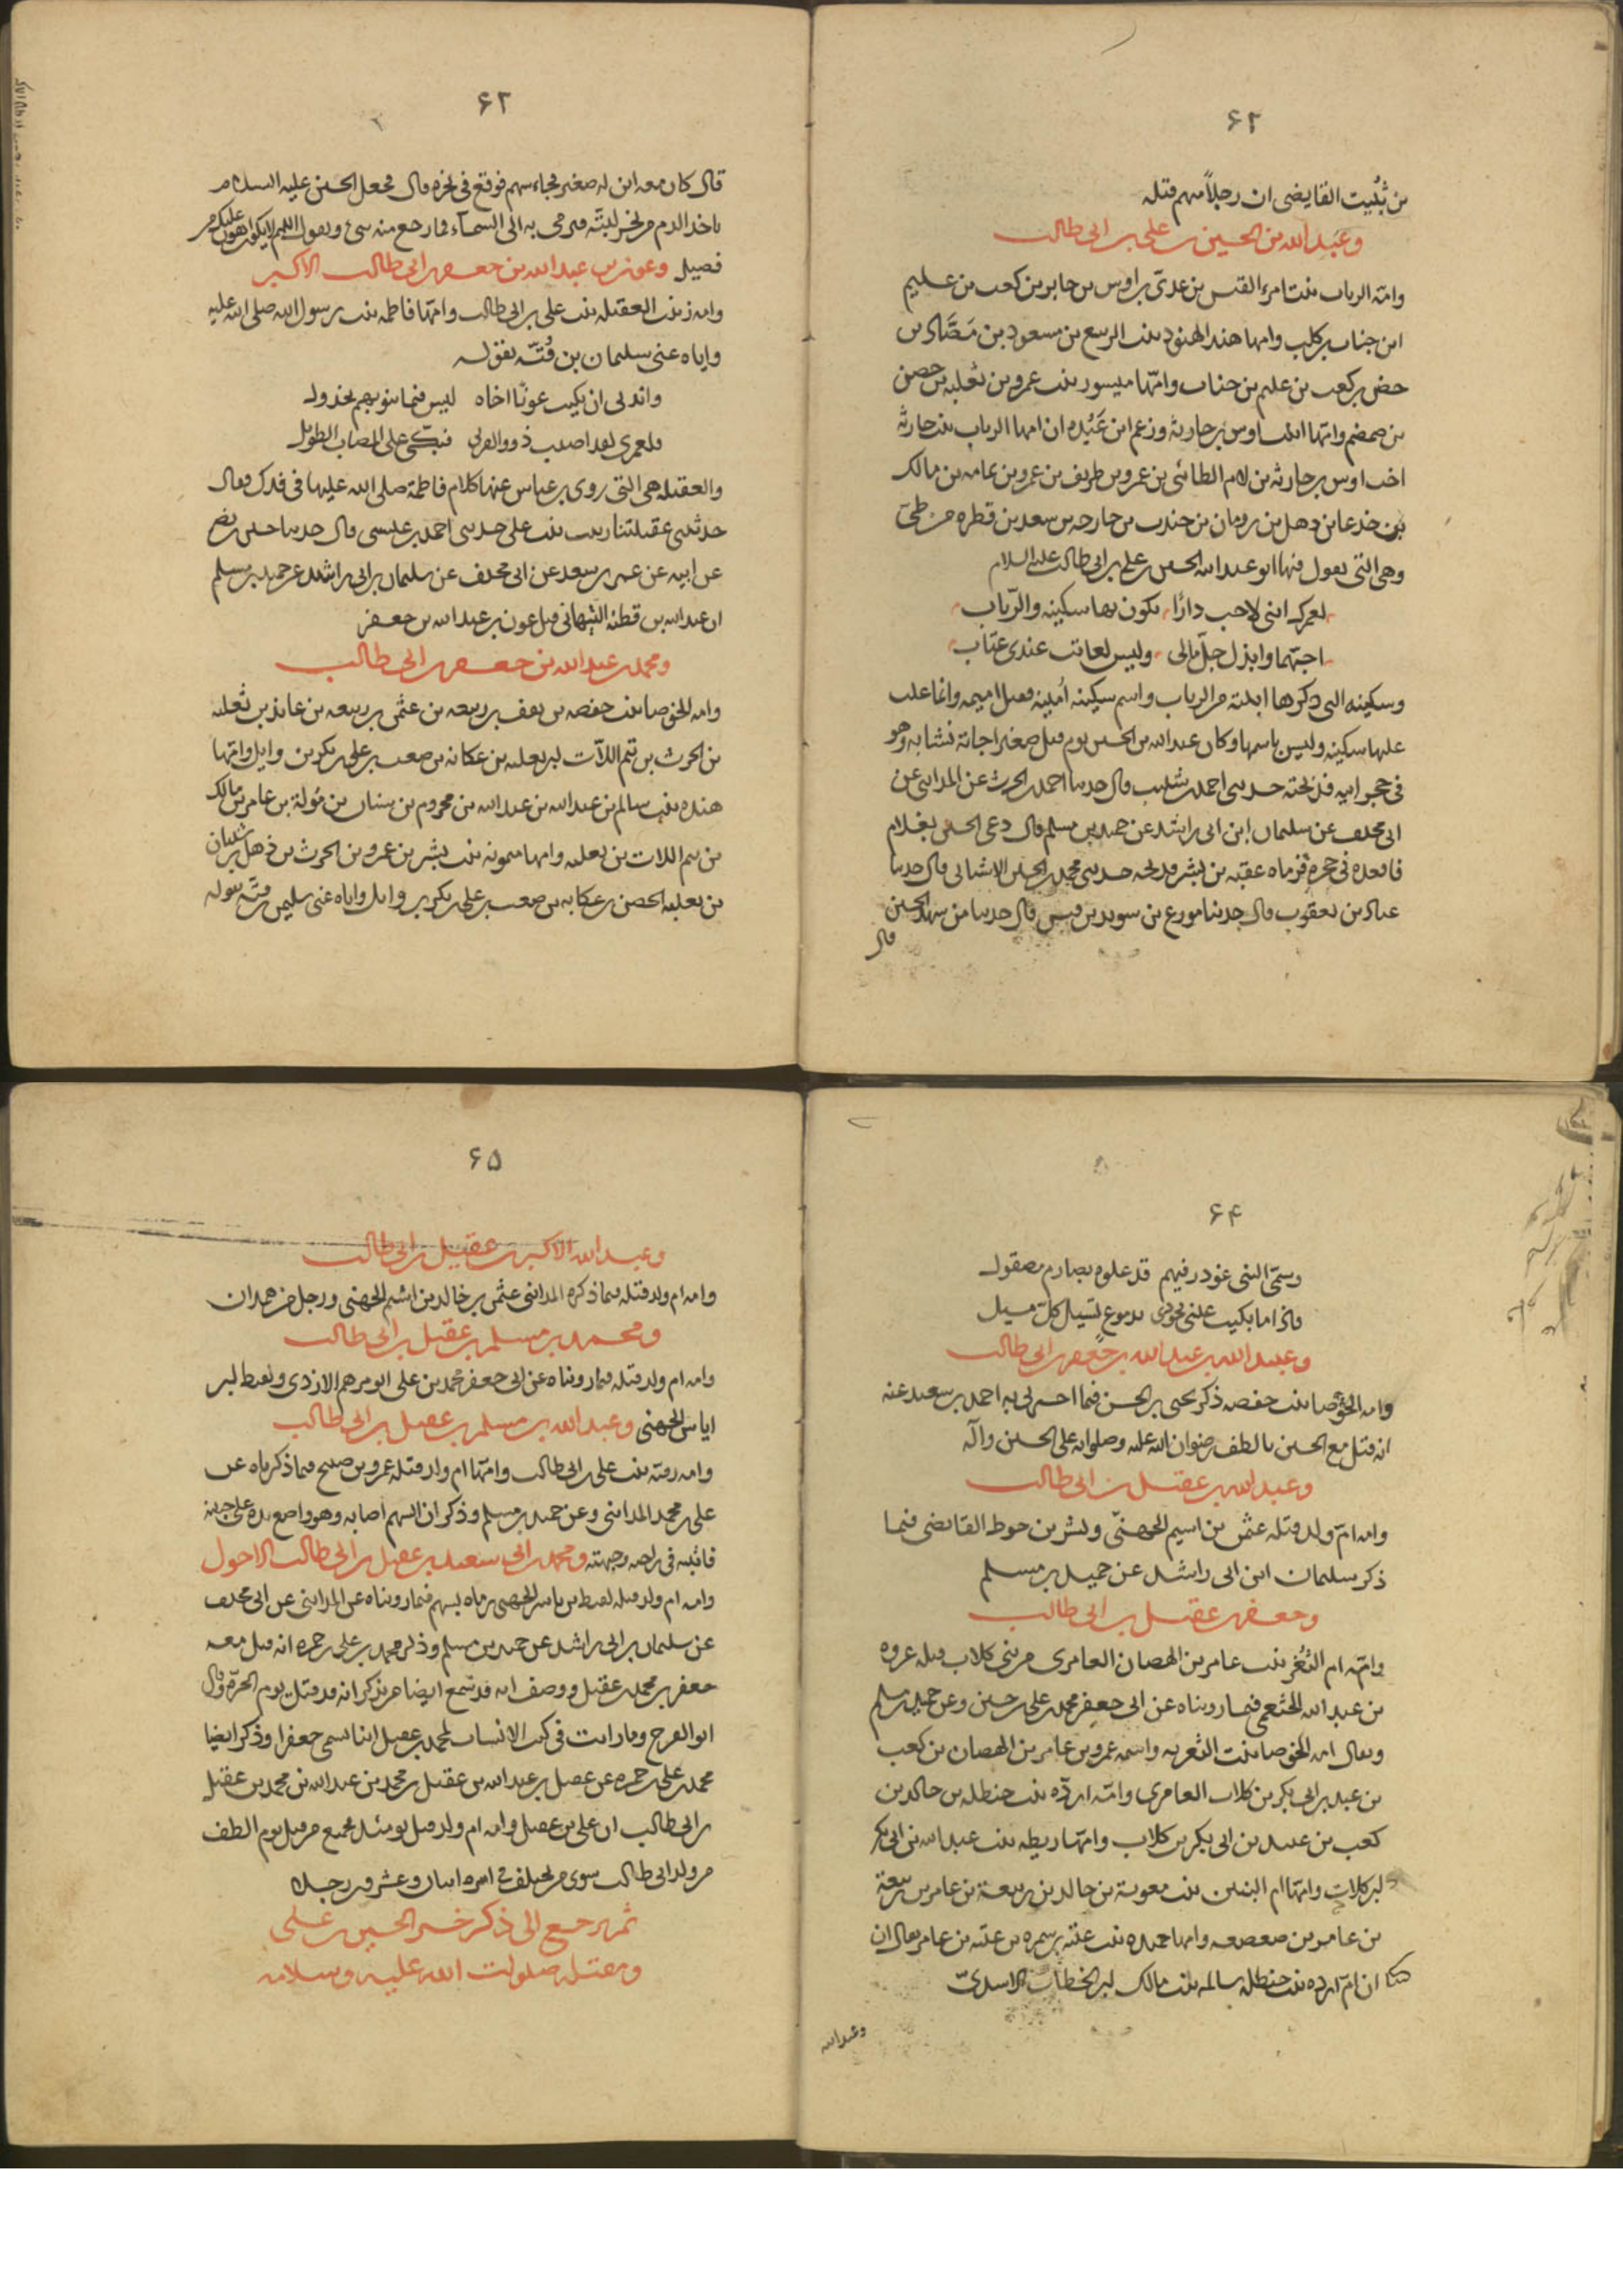 ۶۲
من ثُبَيت القايضى ان رجلاً منهم قتله
وعبد الله بن الحسين بن على بن ابى طالب
وامّه الرباب بنت امرء القيس بن عدىّ بن اوس بن جابر بن كعب بن عليم
ابن جناب بن كلب وامها هند الهنود بنت الربيع بن مسعود بن مَصَّاد بن
حصن بن كعب بن عليم بن جناب وامّها ميسور بنت عمرو بن ثعلبه بن حصن
بن ضمضم وامّها ابنت اوس بن حارثه وزعم ابن عَبُده ان امها الرباب بنت حارثه
اخت اوس بن حارثه بن لام الطائى بن عمرو بن طريف بن عمرو بن عامه بن مالك
بن جدعا بن دهل بن رومان بن جندب بن خارجه بن سعد بن قطره من طىّ
وهى التى يقول فيها ابو عبد الله الحسين بن على بن ابى طالب عليه السلام
لعمرك اننى لاحب دارًا تكون بها سكينه والرّباب
احبّهما وابذل جلّ مالى وليس لعاتب عندى عتاب
وسكينه التى ذكرها ابنته من الرباب واسم سكينه اُمَينه وقيل اميمه وانما غلب
عليها سكينه وليس باسمها وكان عبد الله بن الحسين يوم قتل صغيرا جاته نشابه وهو
فى حجر ابيه فذبحته حدثنى احمد بن شبيب قال حدثنا احمد بن الحرث عن المدائنى عن
ابى مخنف عن سليمان ابن ابى راشد عن حميد بن مسلم قال دعى الحسين بغلام
فاقعده فى حجره فرماه عقبه بن بشر فذبحه حدثنى محمد بن الحسين الاشنانى قال حدثنا
عباد بن يعقوب قال حدثنا مورع بن سويد بن قيس قال حدثنا من شهد الحسين
قال
۶۳
قال كان معه ابن له صغير فجاء سهم فوقع فى نحره قال فجعل الحسين عليه السلام
ياخذ الدم من نحر لبّته فيرمى به الى السمآء فما رجع منه شئ ويقول اللهم لا يكون اهون عليك من
فصيل وعون بن عبد الله بن جعفر بن ابى طالب الاكبر
وامه زينب العقيله بنت على بن ابى طالب وامّها فاطمه بنت رسول الله صلى الله عليه
واياه عنى سليمان بن قُتّه بقوله
واندبى ان بكيت عونًا اخاه ليس فيما ينوبهم بخذول
فلعمرى لقد اصيب ذوو القربى فبكّى على المصاب الطويل
والعقيله هى التى روى بن عباس عنها كلام فاطمة صلى الله عليها فى فدك فقال
حدثتنى عقيلتنا زينب بنت على حدثنى احمد بن عيسى قال حدثنا حسين بن نصر
عن ابيه عن عمر بن سعد عن ابى مخنف عن سليمان بن ابى راشد عن حميد بن مسلم
ان عبد الله بن قطنه التيهانى قتل عون بن عبد الله بن جعفر
ومحمد بن عبد الله بن جعفر بن ابى طالب
وامه الخوصا بنت حفصه بن ثقف بن ربيعه بن عثمن بن ربيعه بن عايذ بن ثعلبه
بن الحرث بن تيم اللاّت بن ثعلبه بن عكابه بن صعب بن على بن بكر بن وايل وامّها
هند بنت سالم بن عبد الله بن عبد الله بن مخزوم بن سنان بن مُولة بن عامر بن مالك
بن تيم اللات بن ثعلبه وامها ميمونه بنت بشر بن عمرو بن الحرث بن ذهل بن شيبان
بن ثعلبه الحصن بن عكابه بن صعب بن على بن بكر بن وايل واياه عنى سليمن بن قتّه بقوله
۶۴
وسمّى النبى غودر فيهم قد علوه بصارم مصقول
فاذا ما بكيت عينى فجودى بدموع تسيل كلّ مسيل
وعبيد الله بن عبد الله بن جعفر بن ابى طالب
وامه الخوصا بنت حفصه ذكر يحيى بن الحسن فيما اخبرنى به احمد بن سعيد عنه
انه قتل مع الحسين بالطف رضوان الله عليه وصلواته على الحسين وآله
وعبد الله بن عقيل بن ابى طالب
وامه امّ ولد قتله عثمن بن اسيم الجهنىّ وبشر بن حوط القايضى فيما
ذكر سليمان ابن ابى راشد عن حميد بن مسلم
وجعفر بن عقيل بن ابى طالب
وامّه ام الثغر بنت عامر بن الهصان العامرى من بنى كلاب قتله عروه
بن عبد الله الخثعمى فيما رويناه عن ابى جعفر محمد بن على بن حسين وعن حميد بن مسلم
ويقال امه الخوصا بنت الثغريه واسمه عمرو بن عامر بن الهصان بن كعب
بن عبد بن ابى بكر بن كلاب العامرى وامّه ارده بنت حنطله بن خالد بن
كعب بن عبيد بن ابى بكر بن كلاب وامّها ريطه بنت عبد الله بن ابى بكر
بن كلاب وامّها ام البنين بنت معوية بن خالد بن ربيعة بن عامر بن ربيعة
بن عامر بن صعصعه وامها حميده بنت عتبه بن سمره بن عتبه بن عامر يقال ان
ان امّ ارده بنت حنطله سالمه بنت مالك بن الخطاب الاسدىّ
وعبد الله
۶۵
وعبد الله الاكبر بن عقيل بن ابى طالب
وامه ام ولد قتله فيما ذكره المدائنى عثمن بن خالد بن اشيم الجهنى ورجل من همدان
ومحمد بن مسلم بن عقيل بن ابى طالب
وامه ام ولد قتله فيما رويناه عن ابى جعفر محمد بن على ابو مرهم الازدى ولقيط بن
اياس الجهنى وعبد الله بن مسلم بن عقيل بن ابى طالب
وامه رقيّه بنت على بن ابى طالب وامّها ام ولد قتله عمرو بن صبيح فيما ذكرناه عن
على بن محمد المدائنى وعن حميد بن مسلم وذكر ان السهم اصابه وهو واضع يده على جبينه
فاثبته فى راحته وجبهته ومحمد بن ابى سعيد بن عقيل بن ابى طالب الاحول
وامه ام ولد قتله لقيط بن ياسر الجهنى رماه بسهم فيما رويناه عن المدائنى عن ابى مخنف
عن سليمان بن ابى راشد عن حميد بن مسلم وذكر محمد بن على بن حمزه انه قتل معه
جعفر بن محمد بن عقيل ووصف انه قد سمع ايضا من يذكر انه قد قتل يوم الحرّه وقال
ابو الفرج وما رايت فى كتب الانساب لمحمد بن عقيل ابنا يسمى جعفرا وذكر ايضا
محمد بن على بن حمزه عن عقيل بن عبد الله بن عقيل بن محمد بن عبد الله بن محمد بن عقيل
بن ابى طالب ان على بن عقيل وامه ام ولد قتل يومئذ فجميع من قتل يوم الطف
من ولد ابى طالب سوى من يختلف فى امره اثنان وعشرون رجلا
ثم نرجع الى ذكر خبر الحسين بن على
ومقتله صلوات الله عليه وسلامه